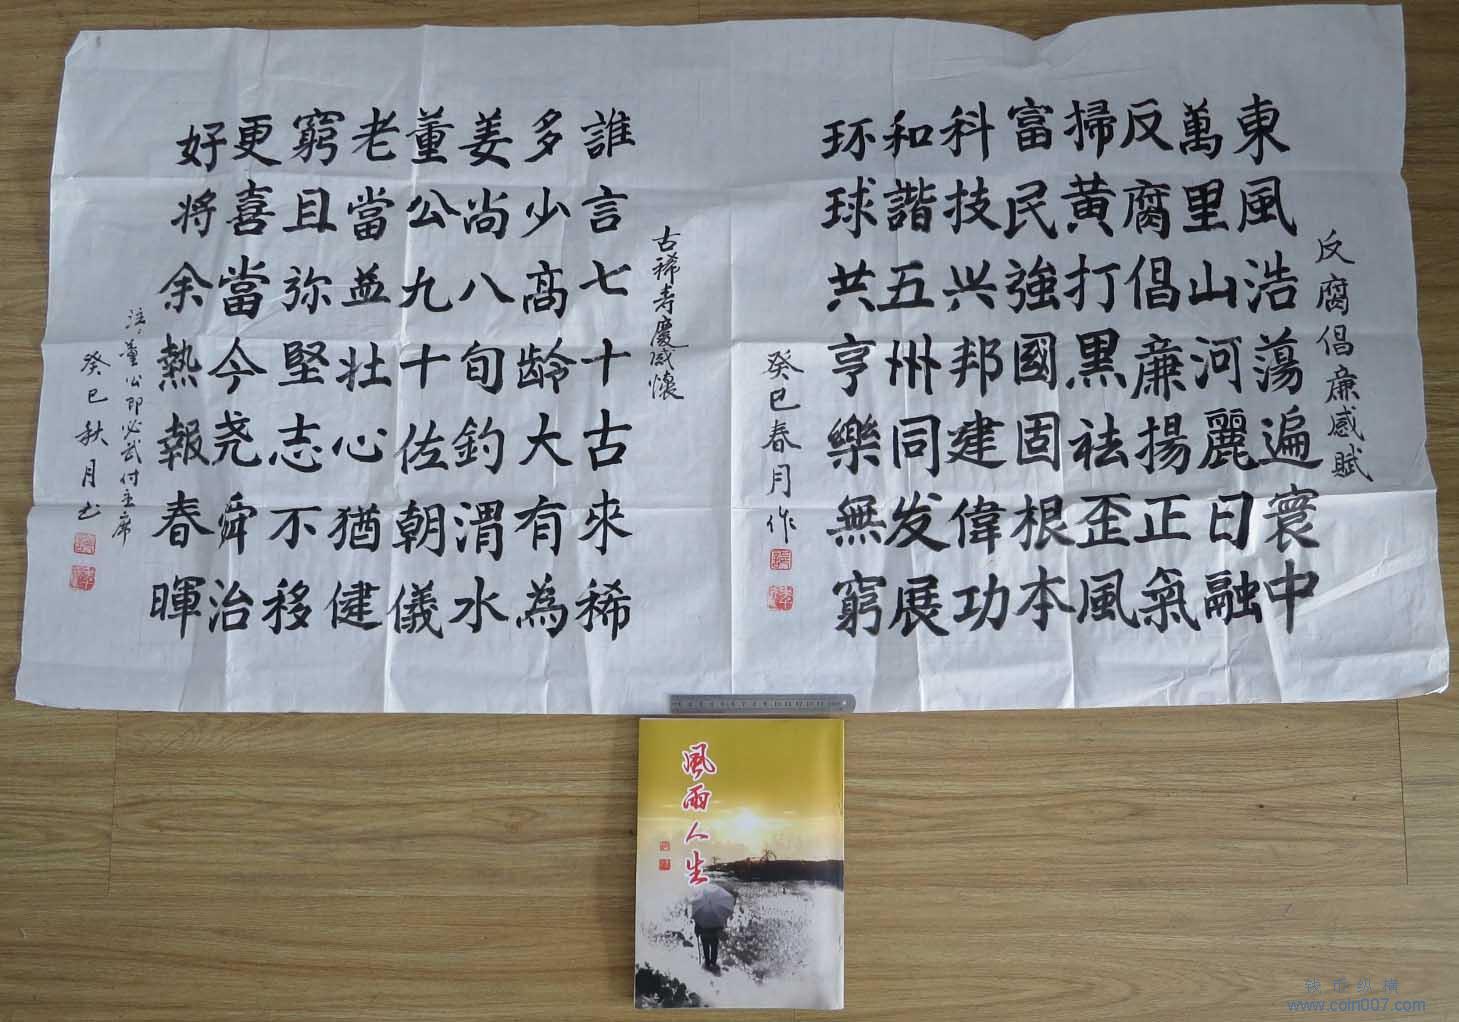 反腐倡亷感賦
東風浩蕩遍寰中
萬里山河麗日融
反腐倡亷揚正氣
掃黃打黑祛歪風
富民強國固根本
科技兴邦建偉功
和諧五州同发展
环球共享樂無窮
癸巳春月作
古稀寿慶感懷
誰言七十古來稀
多少高龄大有為
姜尚八旬釣渭水
董公九十佐朝儀
老當益壯心猶健
窮且弥堅志不移
更喜當今尧舜治
好将余熱報春暉
注:董公即必武付主席
癸巳秋月书
風雨人生
钱币纵横
www.coin007.com